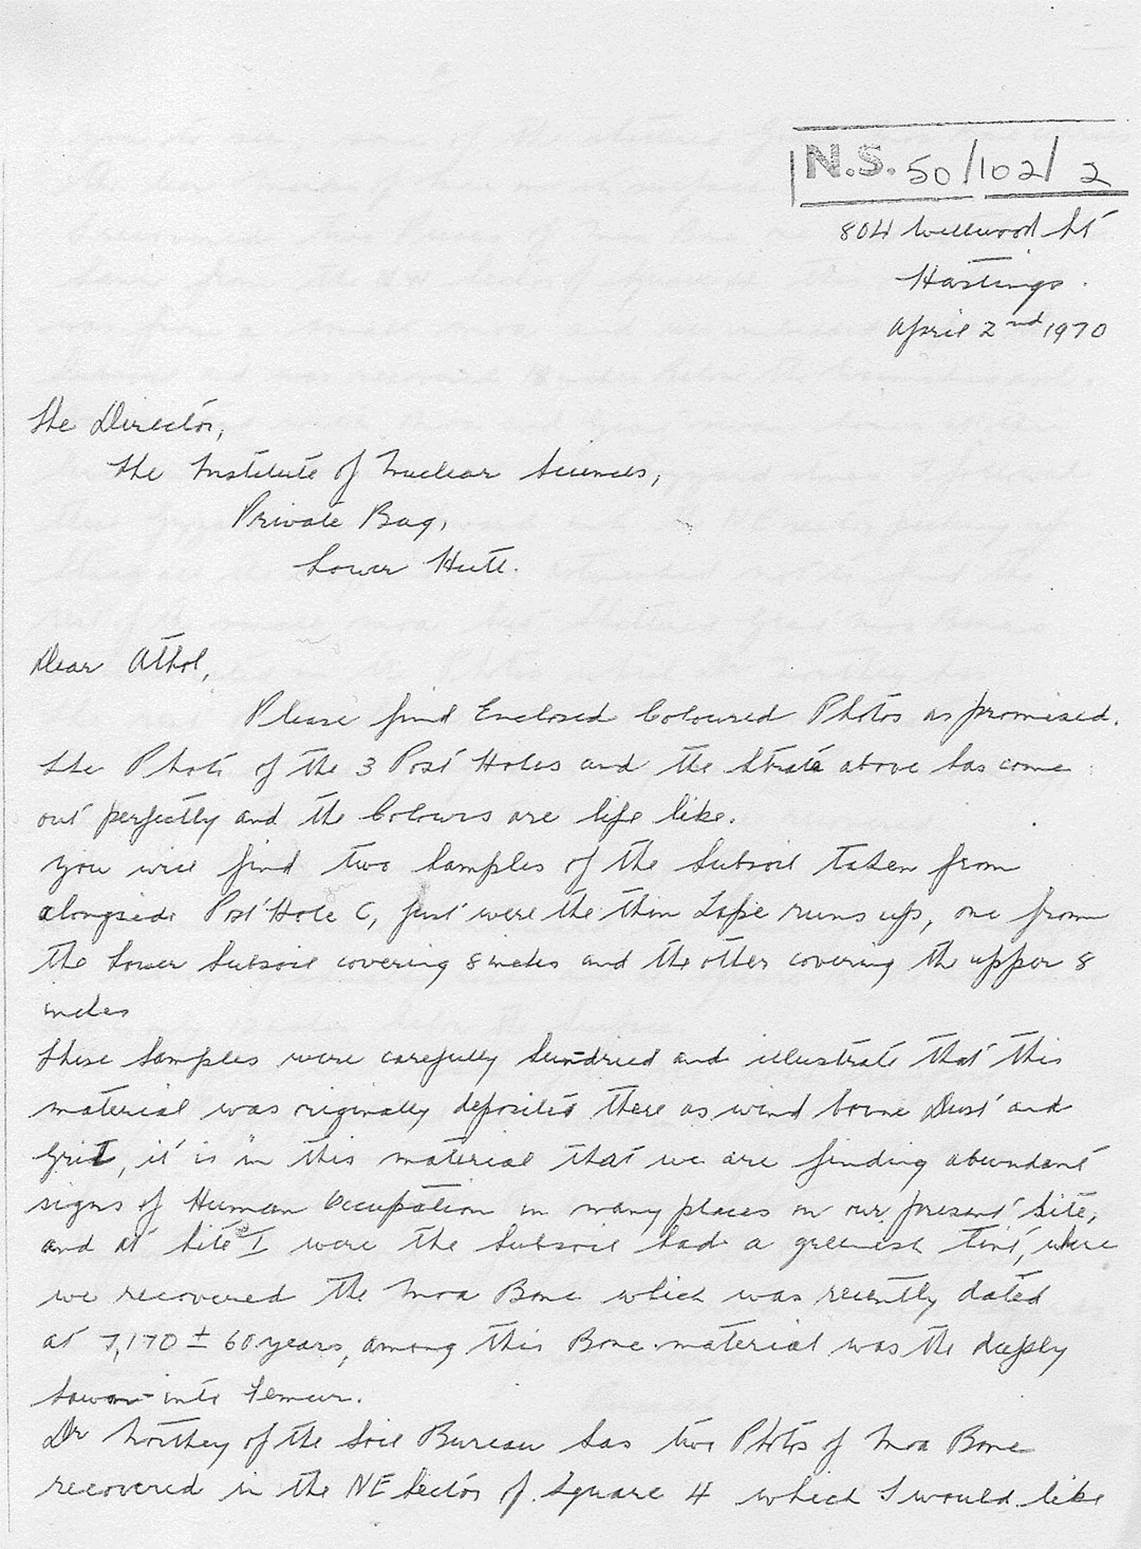 N.S. 50/102/2
804 Wellwood St
Hastings.
April 2nd 1970
The Director,
The Institute of Nuclear Sciences,
Private Bag,
Lower Hutt.
Dear Athol,
Please find Enclosed Coloured Photos as promised.
The Photo of the 3 Post Holes and the Strata above has come
out perfectly and the Colours are life like.
You will find two Samples of the Subsoil taken from
alongside Post Hole C, just were the thin Lense runs up, one from
the Lower Subsoil covering 8 inches and the other covering the upper 8
inches
These Samples were carefully Sundried and illustrate that this
material was originally deposited there as wind borne Dust and
Grit, it is in this material that we are finding abundant
signs of Human Occupation in many places on our present Site,
and at Site I were the Subsoil had a greenish tint, where
we recovered the Moa Bone which was recently dated
at 7,170 ± 60 years, among this Bone material was the deeply
Sawn into Femur.
Dr Northey of the Soil Bureau has two Photos of Moa Bone
recovered in the NE Sector of Square 4 which I would like